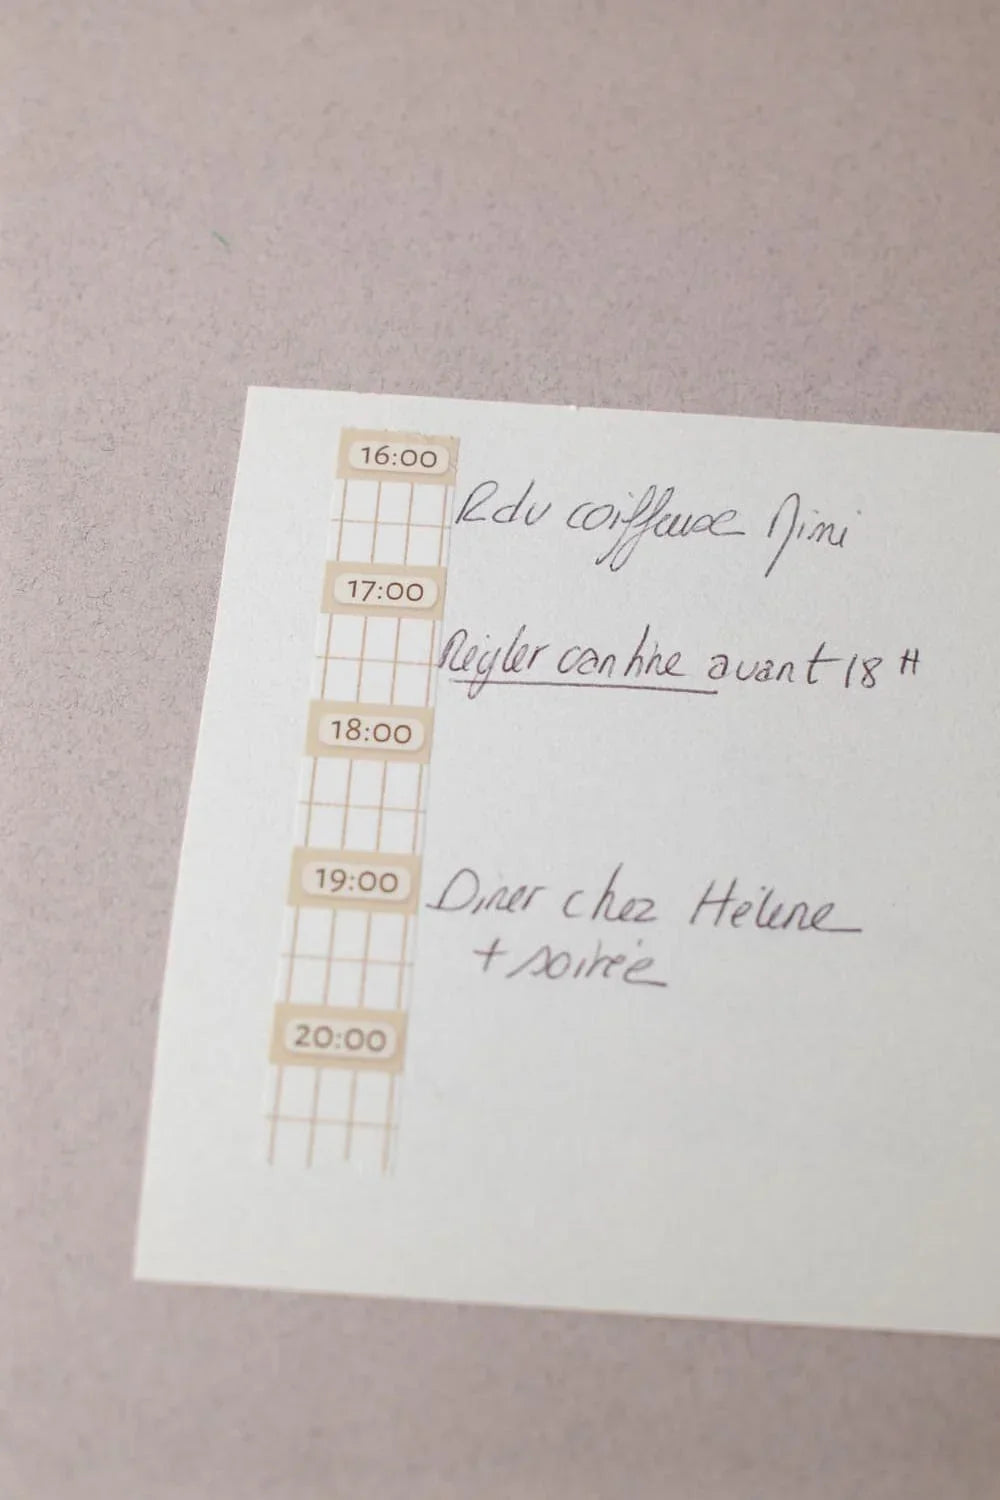 16:00
Rdv coiffeuse Mimi
17:00
Régler cantine avant 18H
18:00
19:00
Diner chez Hélène
+ soirée
20:00